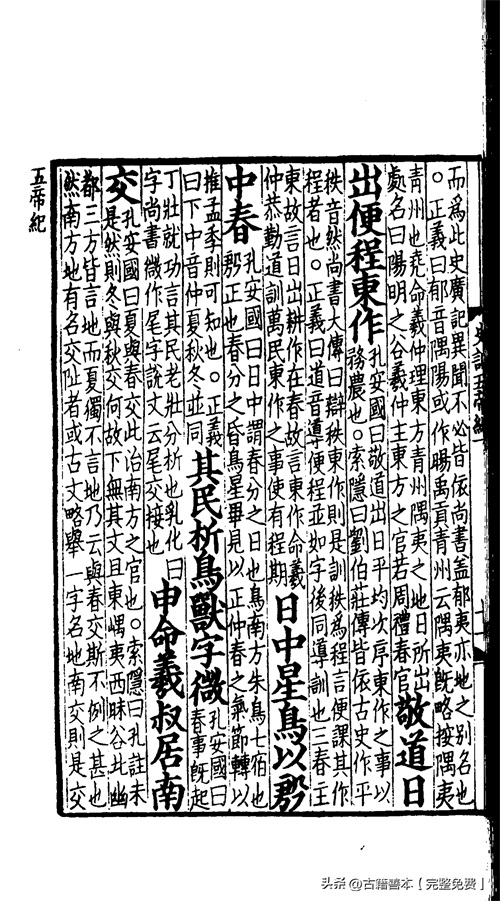 史記五帝紀
而爲此史廣記異聞不必皆依尚書盖郁夷亦地之别名也
。正義曰郁音隅陽或作暘禹貢青州云隅夷旣略按隅夷
青州也堯命羲仲理東方青州隅夷之地日所出
處名曰陽明之谷羲仲主東方之官若周禮春官
敬道日
出便程東作
孔安國曰敬道出日平均次序東作之事以
務農也。索隱曰劉伯莊傳皆依古史作平
秩音然尚書大傳曰辯秩東作則是訓秩爲程言便課其作
程者也。正義曰道音導便程並如字後同導訓也三春主
東故言日出耕作在春故言東作命羲
仲恭勤道訓萬民東作之事使有程期
日中星鳥以殷
中春
孔安國曰日中謂春分之日也鳥南方朱鳥七宿也
殷正也春分之昏鳥星畢見以正仲春之氣節轉以
推孟季則可知也。正義
曰下中音仲夏秋冬並同
其民析鳥獸字微
孔安國曰
春事旣起
丁壯就功言其民老壯分析也乳化曰
字尚書微作尾字說文云尾交接也
申命羲叔居南
交
孔安國曰夏與春交此治南方之官也。索隱曰孔註未
是然則冬與秋交何故下無其文且東嵎夷西昧谷北幽
都三方皆言地而夏獨不言地乃云與春交斯不例之甚也
然南方地有名交阯者或古文略舉一字名地南交則是交
五帝紀
头条 @古籍善本【完整免费】